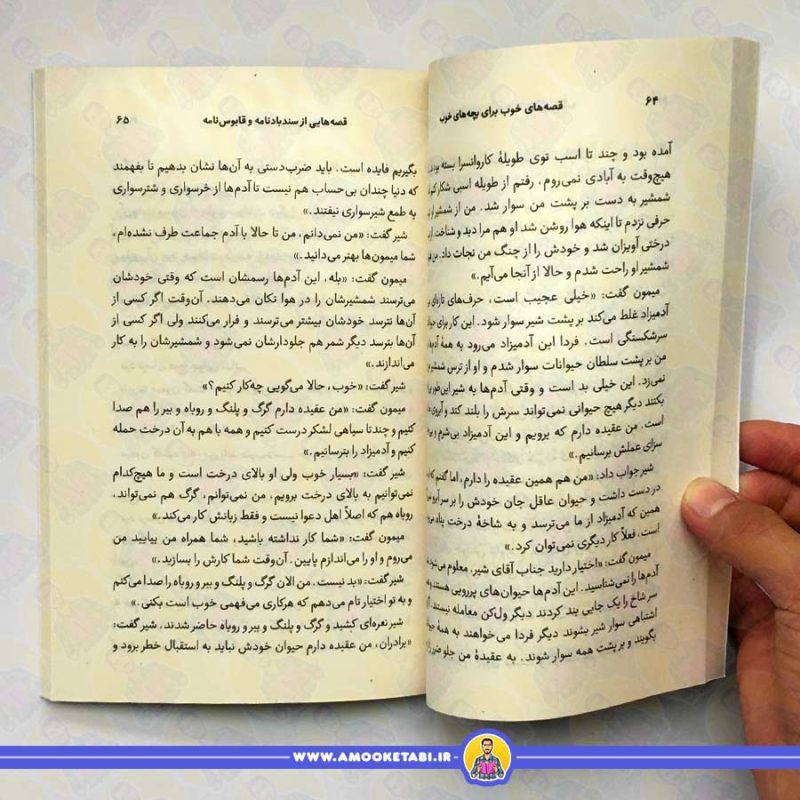 ۶۴ قصه‌های خوب برای بچه‌های خوب
آمده بود و چند تا اسب توی طویلهٔ کاروانسرا بسته بودند.
هیچ‌وقت به آبادی نمی‌روم، رفتم از طویله اسبی شکار کنم
شمشیر به دست بر پشت من سوار شد. من از شمشیر او
حرفی نزدم تا اینکه هوا روشن شد و او هم مرا دید و شناخت
درختی آویزان شد و خودش را از چنگ من نجات داد. من
شمشیر او راحت شدم و حالا از آنجا می‌آیم.»
میمون گفت: «خیلی عجیب است، حرف‌های تازه‌ای
آدمیزاد غلط می‌کند بر پشت شیر سوار شود. این کار برای
سرشکستگی است. فردا این آدمیزاد می‌رود به همهٔ
من بر پشت سلطان حیوانات سوار شدم و او از ترس
نمی‌زد. این خیلی بد است و وقتی آدم‌ها به شیر این‌طور
بکنند دیگر هیچ حیوانی نمی‌تواند سرش را بلند کند و آبروی
است. من عقیده دارم که برویم و این آدمیزاد بی‌شرم و
سزای عملش برسانیم.»
شیر جواب داد: «من هم همین عقیده را دارم، اما گفتم که
در دست داشت و حیوان عاقل جان خودش را بر سر آبرو
همین که آدمیزاد از ما می‌ترسد و به شاخهٔ درخت پناه
است. فعلاً کار دیگری نمی‌توان کرد.»
میمون گفت: «اختیار دارید جناب آقای شیر، معلوم می‌شود
آدم‌ها را نمی‌شناسید. این آدم‌ها حیوان‌های پررویی هستند و
سر شاخ را یک جایی بند کردند دیگر ول‌کن معامله نیستند.
اشتباهی سوار شیر بشوند دیگر فردا می‌خواهند به همهٔ
بگویند و بر پشت همه سوار شوند. به عقیدهٔ من جلو
قصه‌هایی از سندبادنامه و قابوس‌نامه ۶۵
بگیریم فایده است. باید ضرب‌دستی به آن‌ها نشان بدهیم تا بفهمند
که دنیا چندان بی‌حساب هم نیست تا آدم‌ها از خرسواری و شترسواری
به طمع شیرسواری نیفتند.»
شیر گفت: «من نمی‌دانم، من تا حالا با آدم جماعت طرف نشده‌ام،
شما میمون‌ها بهتر می‌دانید.»
میمون گفت: «بله، این آدم‌ها رسمشان است که وقتی خودشان
می‌ترسند شمشیرشان را در هوا تکان می‌دهند. آن‌وقت اگر کسی از
آن‌ها نترسد خودشان بیشتر می‌ترسند و فرار می‌کنند ولی اگر کسی از
آن‌ها بترسد دیگر شمر هم جلودارشان نمی‌شود و شمشیرشان را به کار
می‌اندازند.»
شیر گفت: «خوب، حالا می‌گویی چه‌کار کنیم؟»
میمون گفت: «من عقیده دارم گرگ و پلنگ و روباه و ببر را هم صدا
کنیم و چندتا سپاهی لشکر درست کنیم و همه با هم به آن درخت حمله
کنیم و آدمیزاد را بترسانیم.»
شیر گفت: «بسیار خوب ولی او بالای درخت است و ما هیچ‌کدام
نمی‌توانیم به بالای درخت برویم، من نمی‌توانم، گرگ هم نمی‌تواند،
روباه هم که اصلاً اهل دعوا نیست و فقط زبانش کار می‌کند.»
میمون گفت: «شما کار نداشته باشید، شما همراه من بیایید من
می‌روم و او را می‌اندازم پایین. آن‌وقت شما کارش را بسازید.»
شیر گفت: «بد نیست. من الان گرگ و پلنگ و ببر و روباه را صدا می‌کنم
و به تو اختیار تام می‌دهم که هرکاری می‌فهمی خوب است بکنی.»
شیر نعره‌ای کشید و گرگ و پلنگ و ببر و روباه حاضر شدند. شیر گفت:
«برادران، من عقیده دارم حیوان خودش نباید به استقبال خطر برود و
WWW.AMOOKETABI.IR